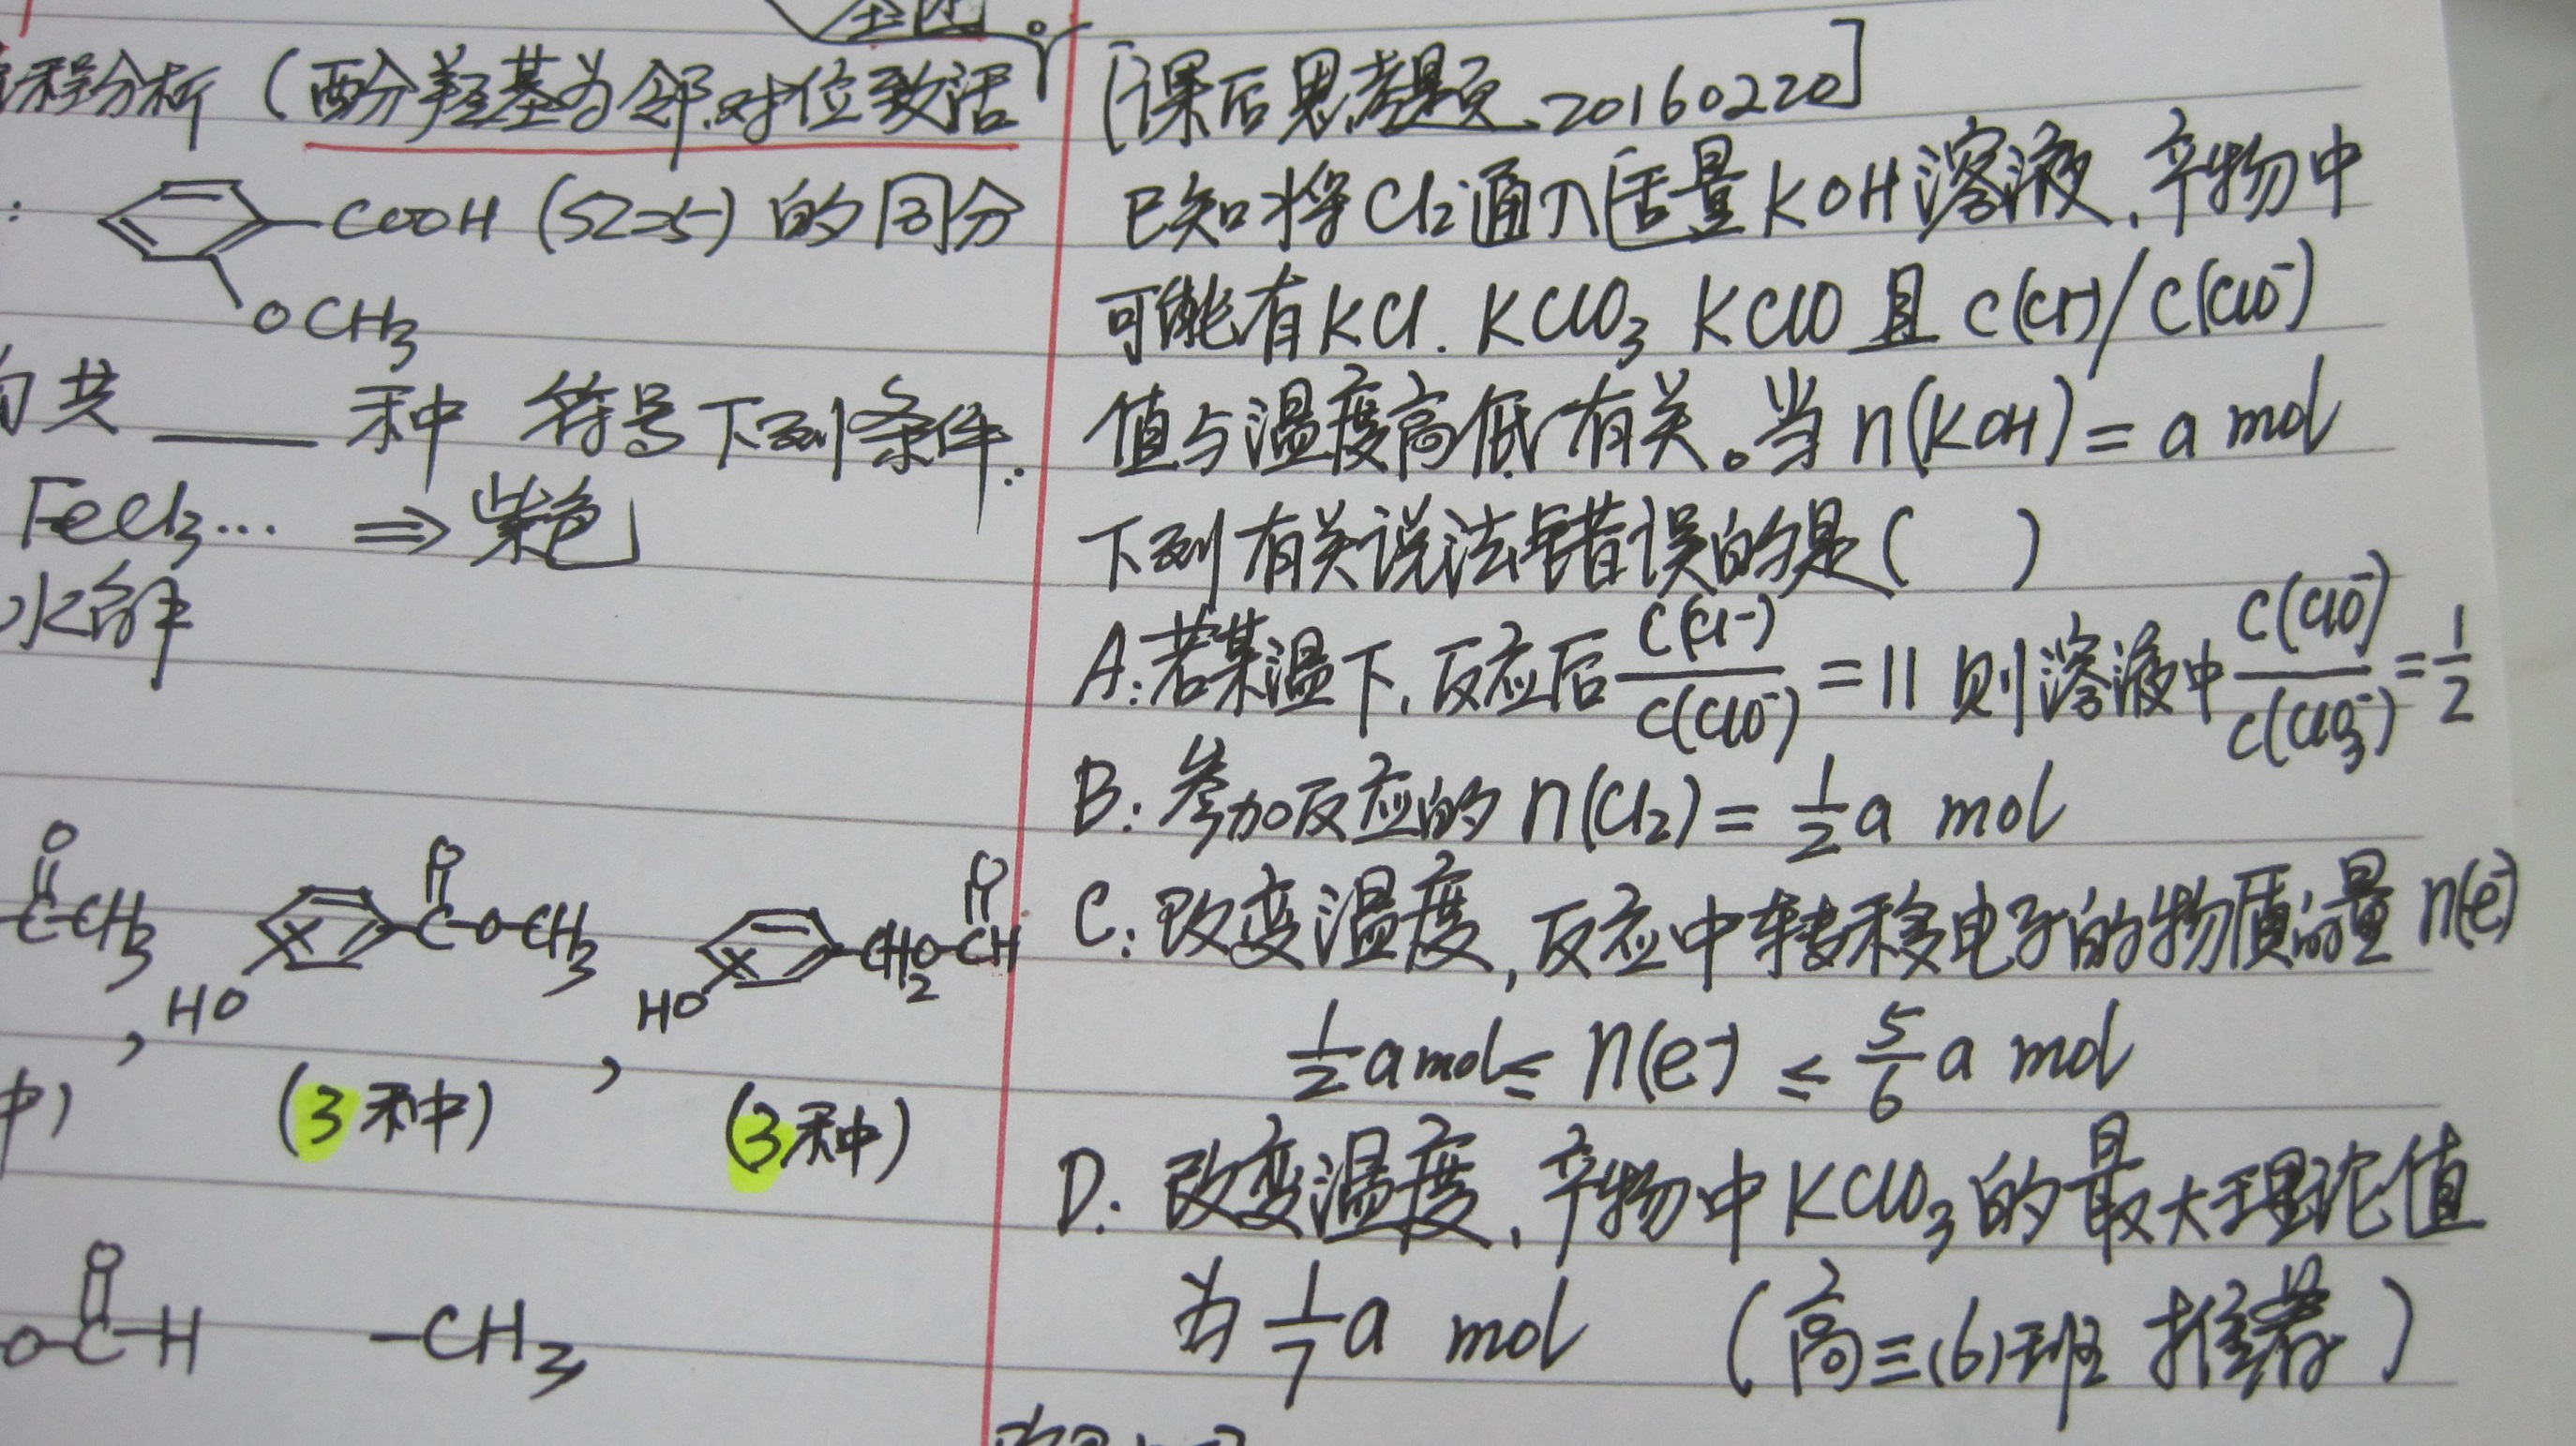 程分析（酚羟基为邻.对位致活
: COOH (Ω=5) 的同分
OCH3
共 ____ 种 符号下列条件:
FeCl3... ⇒ 紫色
水解
O
C-CH3
O
C-O-CH3
HO
O
CH2O-CH
HO
, (3种) , (3种)
O
O-C-H -CH3
[课后思考题.20160220]
已知将Cl2通入适量KOH溶液.产物中
可能有KCl. KClO3 KClO 且 c(Cl-)/c(ClO-)
值与温度高低有关。当n(KOH)= a mol
下列有关说法错误的是( )
A:若某温下.反应后 c(Cl-)/c(ClO-) =11 则溶液中 c(ClO-)/c(ClO3-) = 1/2
B:参加反应的 n(Cl2)= 1/2 a mol
C:改变温度,反应中转移电子的物质的量 n(e-)
1/2 a mol≤ n(e-) ≤ 5/6 a mol
D:改变温度.产物中KClO3的最大理论值
为 1/7 a mol (高三(6)班 推荐)